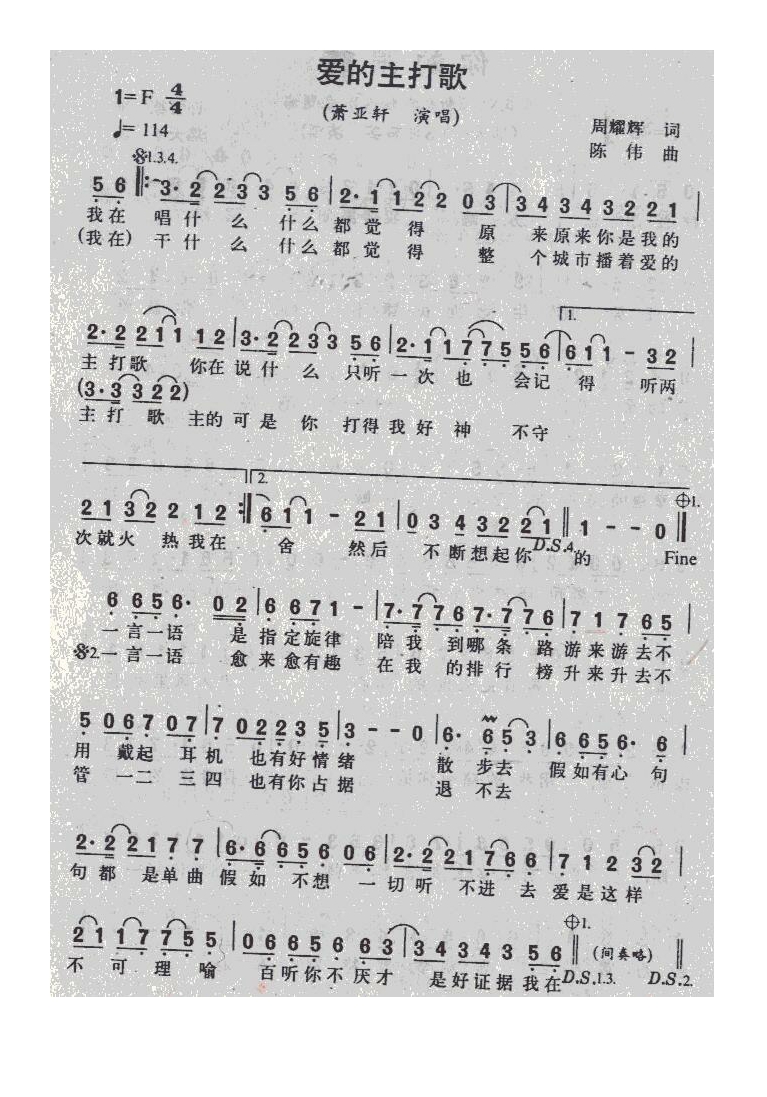 爱的主打歌
1=F 4/4
(萧亚轩 演唱)
♩=114
周耀辉 词
陈伟 曲
𝄋1.3.4.
5 6 ‖: 3· 2 2 3 3 5 6 | 2· 1 1 2 2 0 3 | 3 4 3 4 3 2 2 1 |
我在 唱什 么 什么 都觉 得 原 来原来你是我的
(我在) 干什 么 什么 都觉 得 整 个城市播着爱的
1.
2· 2 2 1 1 1 2 | 3· 2 2 3 3 5 6 | 2· 1 1 7 7 5 5 6 | 6 1 1 - 3 2 |
主打歌 你在 说什 么 只听 一次也 会记 得 听两
(3· 3 3 2 2 2)
主打 歌 主的 可是 你 打得 我好 神 不守
2.
⊕1.
2 1 3 2 2 1 2 :‖ 6 1 1 - 2 1 | 0 3 4 3 2 2 1 ‖ 1 - - 0 ‖
次就火 热我在 舍 然后 不断想起你 D.S.4. 的 Fine
6 6 5 6· 0 2 | 6 6 7 1 - | 7· 7 7 6 7· 7 7 6 | 7 1 7 6 5 |
一言一语 是 指定旋律 陪我 到哪条 路 游来游去不
𝄋2.一言一语 愈 来愈有趣 在我 的排行 榜 升来升去不
5 0 6 7 0 7 | 7 0 2 2 3 5 | 3 - - 0 | 6· 6 5 3 | 6 6 5 6· 6 |
用 戴起 耳 机 也有好情 绪 散 步去 假如有心 句
管 一二 三 四 也有你占 据 退 不去
2· 2 2 1 7 7 | 6· 6 6 5 6 0 6 | 2· 2 2 1 7 6 6 | 7 1 2 3 2 |
句都 是单曲 假如 不想 一 切听 不进 去 爱是这样
⊕1.
2 1 1 7 7 5 5 | 0 6 6 5 6 6 3 | 3 4 3 4 3 5 6 ‖ (间奏略) ‖
不 可理 喻 百听你不厌才 是好证据我在 D.S.1.3. D.S.2.